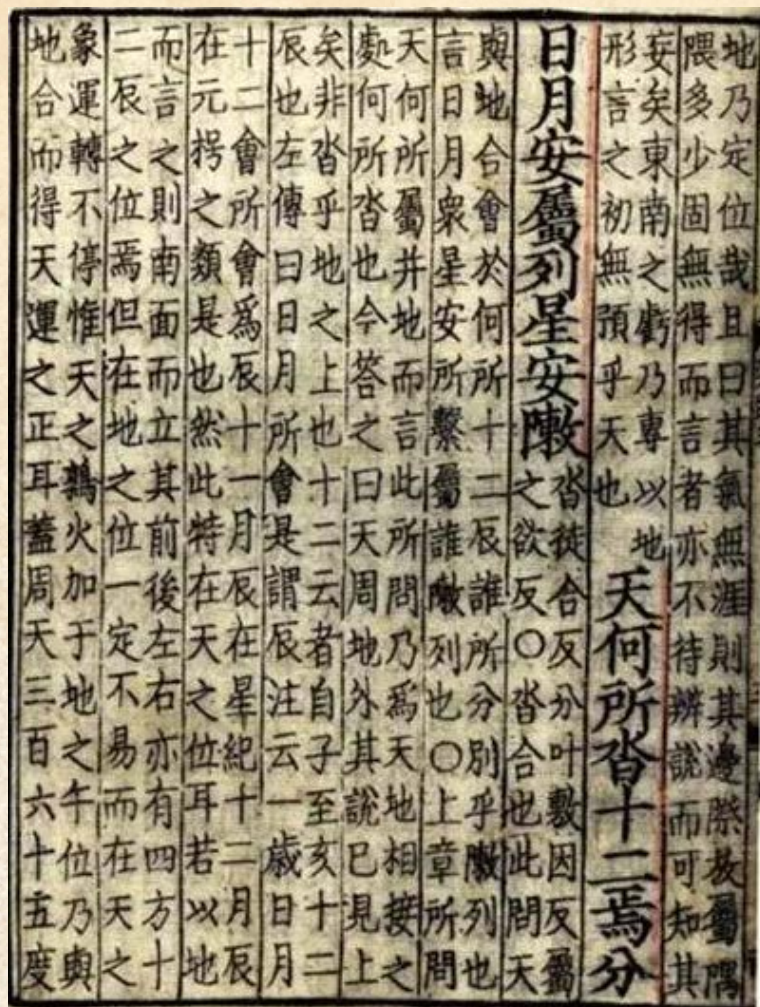 地乃定位哉且曰其氣無涯則其邊際放屬隅
隈多少固無得而言者亦不待辨說而可知其
妄矣東南之虧乃專以地
形言之初無預乎天也
天何所沓十二焉分
日月安屬列星安敶
沓徒合反分叶敷因反屬
之欲反○沓合也此問天
與地合會於何所十二辰誰所分別乎敶列也
言日月衆星安所繫屬誰敶列也○上章所問
天何所屬并地而言此所問乃爲天地相接之
處何所沓也今答之曰天周地外其說已見上
矣非沓乎地之上也十二云者自子至亥十二
辰也左傳曰日月所會是謂辰注云一歲日月
十二會所會爲辰十一月辰在星紀十二月辰
在元枵之類是也然此特在天之位耳若以地
而言之則南面而立其前後左右亦有四方十
二辰之位焉但在地之位一定不易而在天之
象運轉不停惟天之鶉火加于地之午位乃與
地合而得天運之正耳蓋周天三百六十五度